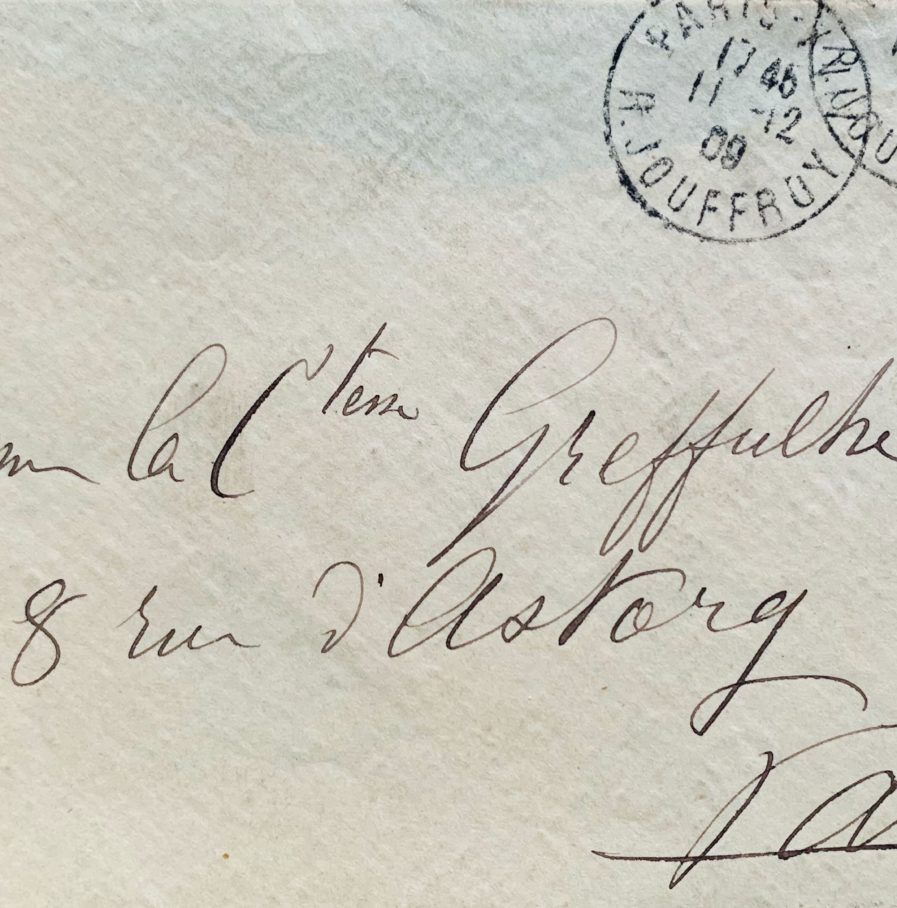 PARIS-X
17 45
11 -12
09
R. JOUFFROY
la Ctesse Greffulhe
8 rue d'Astorg
Pa